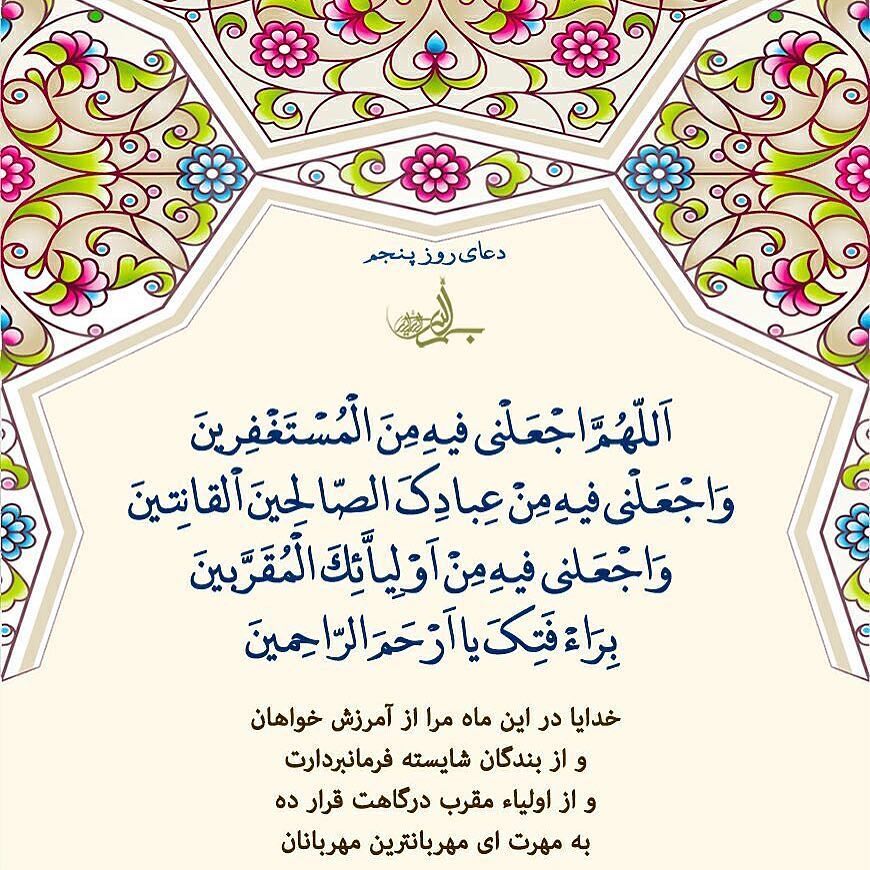 دعای روز پنجم
بسم الله الرحمن الرحیم
اَللّهُمَّ اجْعَلْنی فیهِ مِنَ الْمُسْتَغْفِرینَ
وَاجْعَلْنی فیهِ مِنْ عِبادِکَ الصّالِحینَ اْلقانِتینَ
وَاجْعَلنی فیهِ مِنْ اَوْلِیاَّئِكَ الْمُقَرَّبینَ
بِرَاءْفَتِکَ یا اَرْحَمَ الرّاحِمینَ
خدایا در این ماه مرا از آمرزش خواهان
و از بندگان شایسته فرمانبردارت
و از اولیاء مقرب درگاهت قرار ده
به مهرت ای مهربانترین مهربانان